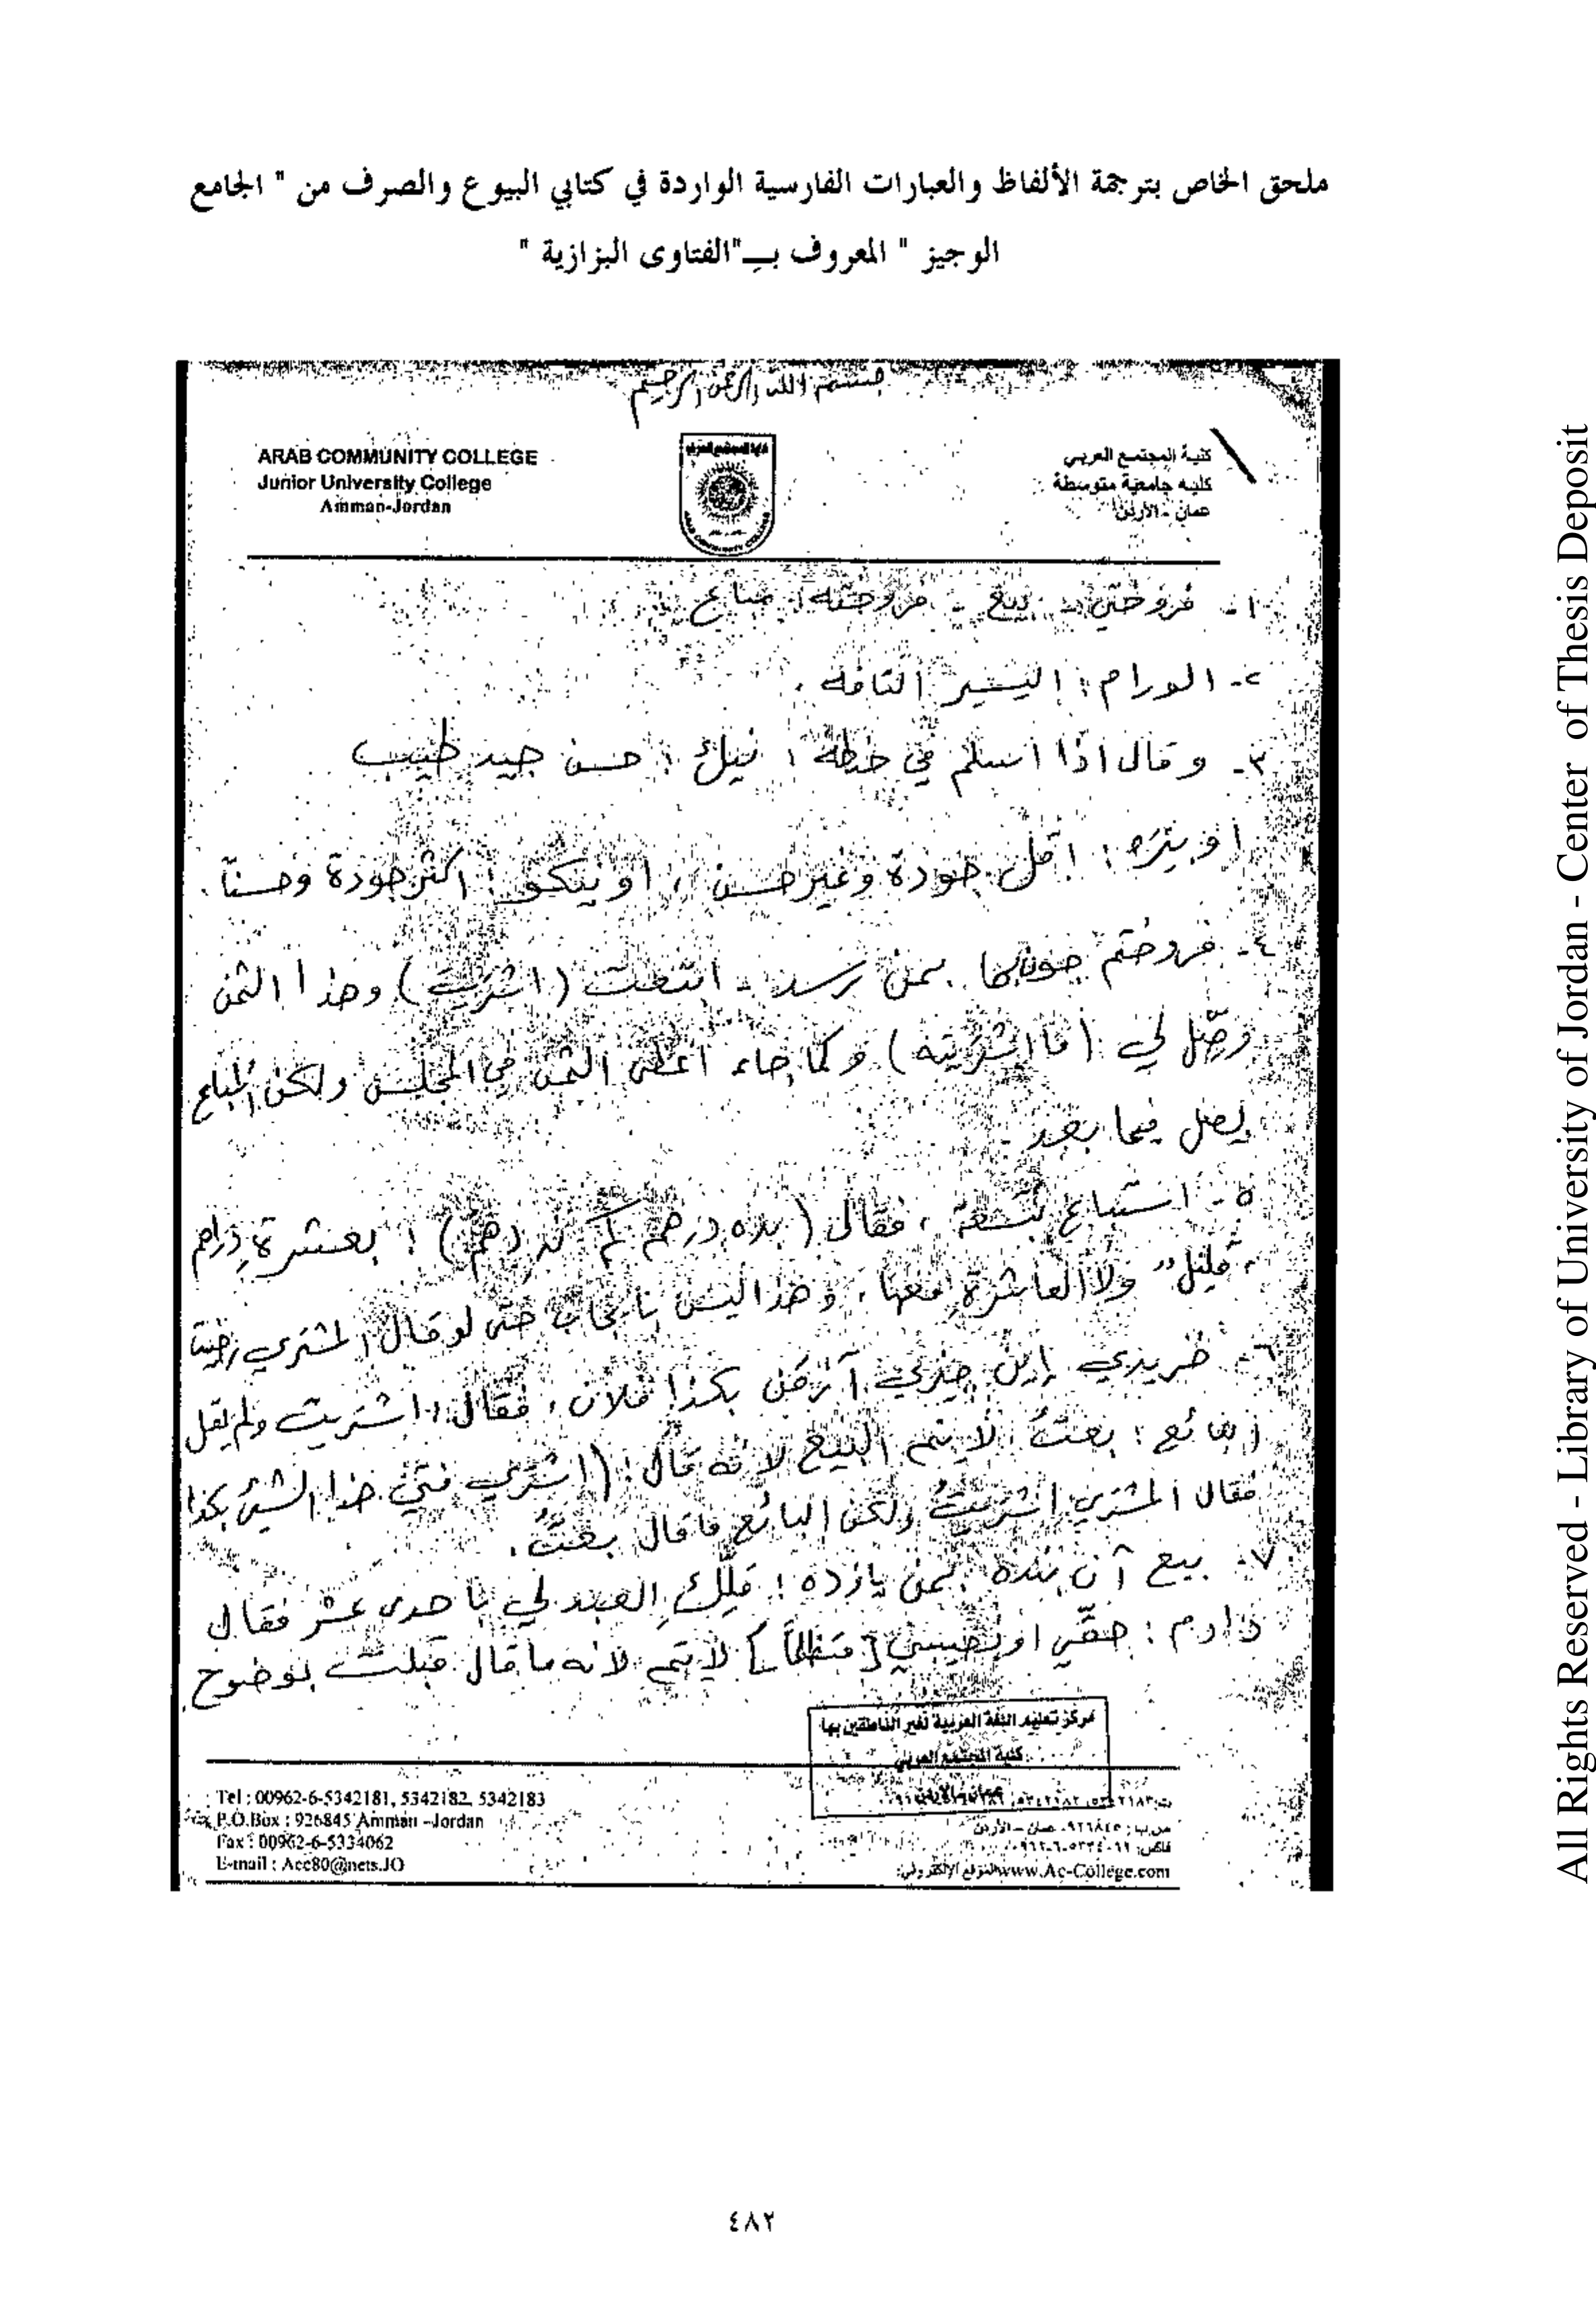 ملحق الخاص بترجمة الألفاظ والعبارات الفارسية الواردة في كتابي البيوع والصرف من " الجامع
الوجيز " المعروف بـ"الفتاوى البزازية "
بسم الله الرحمن الرحيم
ARAB COMMUNITY COLLEGE
Junior University College
Amman-Jordan
كلية المجتمع العربي
كلية جامعية متوسطة
عمان - الأردن
١- فروختن - بيع - فروخته : مباع
٢- الورام : اليسير التافه .
٣- وقال اذا اسلم في حنطة : نيك : حسن جيد طيب
او بتره : اقل جودة وغير حسن ، او نيكو : اكثر جودة وحسناً .
٤- فروختم بمن رسد - ابتعت (اشتريت) وهذا الثمن
وصّل لي (ما اشتريته) وكما جاء اعطى الثمن في المجلس ولكن المبلغ
يصل فيما بعد
٥- استباع بتسعة ، فقال (بده درهم كم) : بعشرة دراهم
"قليل" ولا العاشرة معها ، وهذا ليس بايجاب حتى لو قال المشتري رضيت
٦- خريدي اين جيزي آز من بكذا فلان ، فقال : اشتريت ولم يقل
البائع : بعتُ لا يتم البيع لانه قال : (اشتري مني هذا الشيئ بكذا
فقال المشتري اشتريتُ ولكن البائع ما قال بعتُ .
٧- بيع آن بنده بمن يازده : ملّك العبد لي باحدى عشر فقال
دارم : حقّي او نصيبي لا يتم لانه ما قال قبلت بوضوح
مركز تعليم اللغة العربية لغير الناطقين بها
كلية المجتمع العربي
عمان - الأردن
Tel : 00962-6-5342181, 5342182, 5342183
P.O.Box : 926845 Amman -Jordan
Fax : 00962-6-5334062
E-mail : Acc80@nets.JO
ص.ب : ٩٢٦٨٤٥ عمان - الأردن
الموقع الإلكتروني: www.Ac-College.com
٤٨٢
All Rights Reserved - Library of University of Jordan - Center of Thesis Deposit